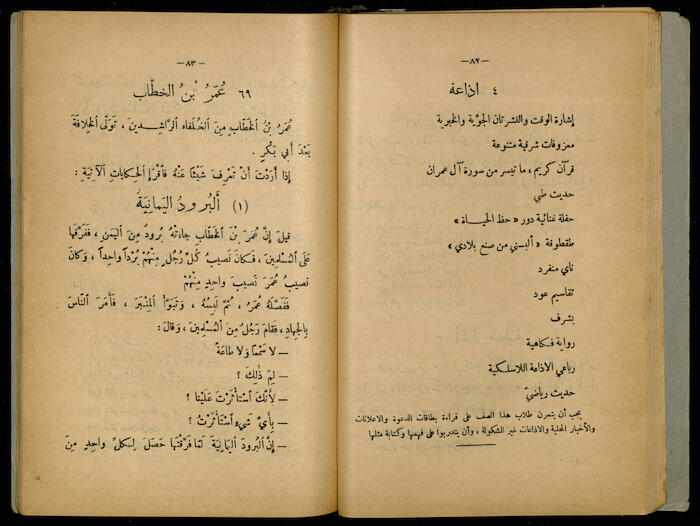 —٨٢—
٤ اذاعة
إشارة الوقت والنشرتان الجوية والخبرية
معزوفات شرقية متنوعة
قرآن كريم ، ما تيسر من سورة آل عمران
حديث طبي
حفلة غنائية دور « حظ الحياة »
طقطوقة « ألبسني من صنع بلادي »
ناي منفرد
تقاسيم عود
بشرف
رواية فكاهية
رباعي الاذاعة اللاسلكية
حديث رياضيّ
يجب أن يتمرن طلاب هذا الصف على قراءة بطاقات الدعوة والاعلانات
والأخبار المحلية والاذاعات غير المشكولة ، وأن يتدربوا على فهمها وكتابة مثلها
—٨٣—
٦٩ عُمَرُ بْنُ الخطَّاب
عُمَرُ بْنُ الْخَطَّابِ مِنَ الْخُلَفَاءِ الرَّاشِدِينَ ، تَوَلَّى الْخِلَافَةَ
بَعْدَ أَبِي بَكْرٍ .
إِذَا أَرَدْتَ أَنْ تَعْرِفَ شَيْئًا عَنْهُ فَاقْرَإِ الْحِكَايَاتِ الْآتِيَةَ :
(١) أَلْبُرودُ الْيَمَانِيَةُ
قِيلَ إِنَّ عُمَرَ بْنَ الْخَطَّابِ جَاءَتْهُ بُرُودٌ مِنَ الْيَمَنِ ، فَفَرَّقَهَا
عَلَى الْمُسْلِمِينَ ، فَكَانَ نَصِيبُ كُلِّ رَجُلٍ مِنْهُمْ بُرْدًا وَاحِدًا ، وَكَانَ
نَصِيبُ عُمَرَ نَصِيبَ وَاحِدٍ مِنْهُمْ
فَفَصَّلَهُ عُمَرُ ، ثُمَّ لَبِسَهُ ، وَتَبَوَّأَ الْمِنْبَرَ ، فَأَمَرَ النَّاسَ
بِالْجِهَادِ ، فَقَامَ رَجُلٌ مِنَ الْمُسْلِمِينَ ، وَقَالَ :
— لَا سَمْعًا وَلَا طَاعَةً
— لِمَ ذٰلِكَ ؟
— لِأَنَّكَ اسْتَأْثَرْتَ عَلَيْنَا ؟
— بِأَيِّ شَيْءٍ اسْتَأْثَرْتُ ؟
— إِنَّ الْبُرُودَ الْيَمَانِيَةَ لَمَّا فَرَّقْتَهَا حَصَلَ لِكُلِّ وَاحِدٍ مِنَ